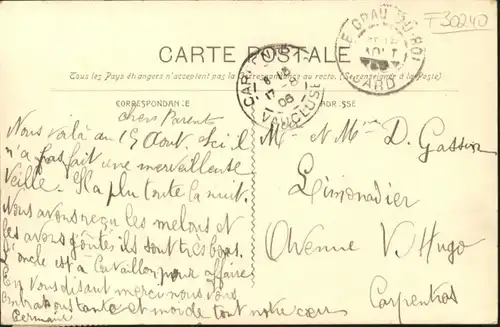 F30240
CARTE POSTALE
Tous les Pays étrangers n'acceptent pas la Correspondance au recto. (Se renseigner à la Poste)
CORRESPONDANCE
ADRESSE
LE GRAU-DU-ROI
GARD
CARPENTRAS
VAUCLUSE
Chers Parents
Nous voilà au 15 Aout. Ici il
n'a pas fait une merveilleuse
Veille. Il a plu toute la nuit.
Nous avons reçu les melons et
les avons goûtés ils sont tres bons.
L'oncle est à Cavaillon pour affaire
En vous disant merci nous vous
embrassons tante et monde tout notre cœur
Germaine
Mr et Mme D. Gassin
Limonadier
Avenue V. Hugo
Carpentras